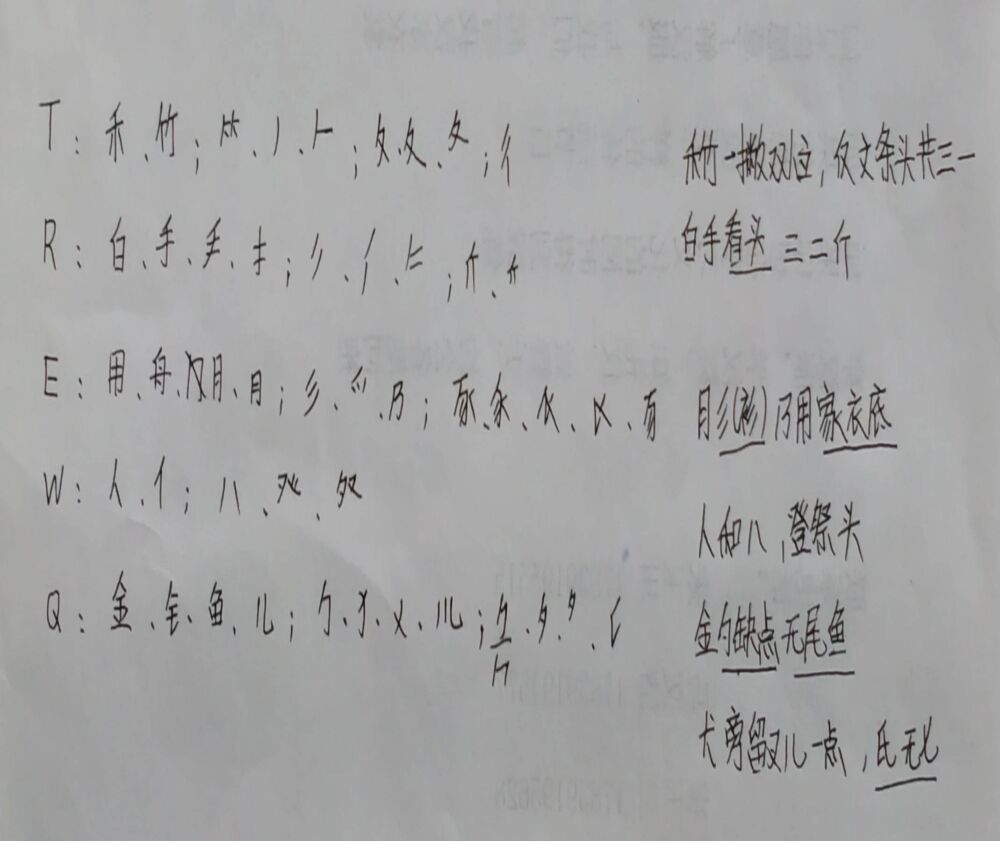 T：禾、竹；⺮、丿、𠂉；攵、夂、攵；彳 禾竹一撇双立，反文条头共三一
R：白、手、龵、扌；彡、厂、𠂒；斤、斤 白手看头三二斤
E：用、舟、月、月；彡、爫、乃；豕、豕、𧘇 月彡(衫)乃用家衣底
W：人、亻；八、癶 人和八，登祭头
Q：金、钅、鱼、儿；勹、犭、乂、儿；夕 金勺缺点无尾鱼
犬旁留叉儿一点，氏无七